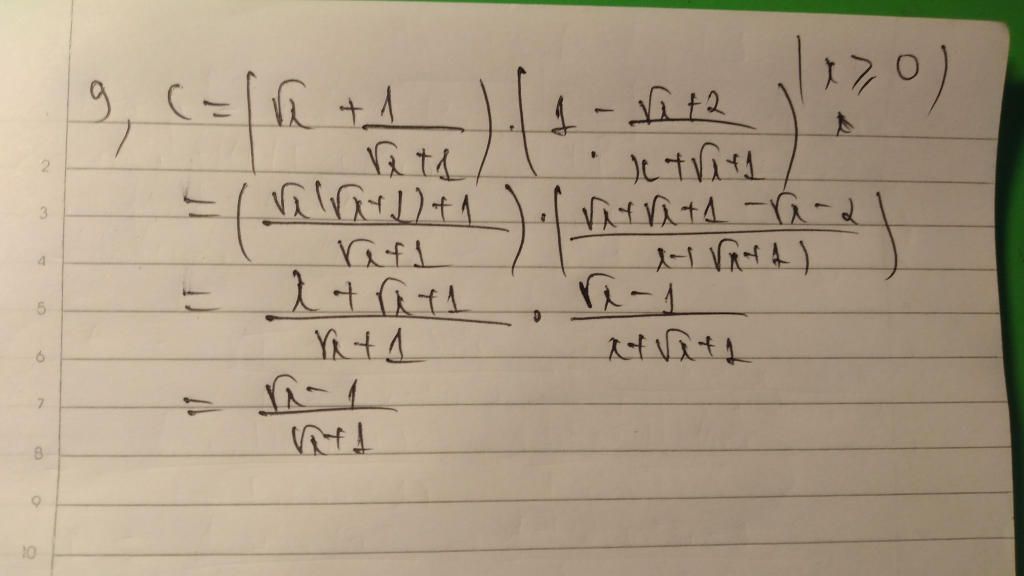 9, C = (√x + 1/(√x+1)) · (1 - (√x+2)/(x+√x+1)) (x ≥ 0)
2
3 = ((√x(√x+1)+1)/(√x+1)) · ((√x+√x+1-√x-2)/(x+√x+1))
4
5 = (x+√x+1)/(√x+1) · (√x-1)/(x+√x+1)
6
7 = (√x-1)/(√x+1)
8
9
10